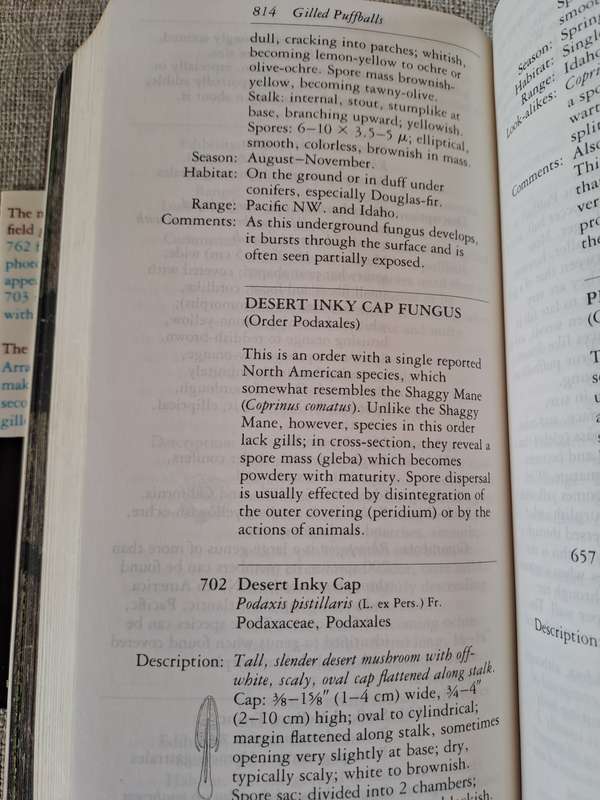 814 Gilled Puffballs
dull, cracking into patches; whitish,
becoming lemon-yellow to ochre or
olive-ochre. Spore mass brownish-
yellow, becoming tawny-olive.
Stalk: internal, stout, stumplike at
base, branching upward; yellowish.
Spores: 6–10 × 3.5–5 µ; elliptical,
smooth, colorless, brownish in mass.
Season: August–November.
Habitat: On the ground or in duff under
conifers, especially Douglas-fir.
Range: Pacific NW. and Idaho.
Comments: As this underground fungus develops,
it bursts through the surface and is
often seen partially exposed.
DESERT INKY CAP FUNGUS
(Order Podaxales)
This is an order with a single reported
North American species, which
somewhat resembles the Shaggy Mane
(Coprinus comatus). Unlike the Shaggy
Mane, however, species in this order
lack gills; in cross-section, they reveal a
spore mass (gleba) which becomes
powdery with maturity. Spore dispersal
is usually effected by disintegration of
the outer covering (peridium) or by the
actions of animals.
702 Desert Inky Cap
Podaxis pistillaris (L. ex Pers.) Fr.
Podaxaceae, Podaxales
Description: Tall, slender desert mushroom with off-
white, scaly, oval cap flattened along stalk.
Cap: ⅜–1⅝" (1–4 cm) wide, ¾–4"
(2–10 cm) high; oval to cylindrical;
margin flattened along stalk, sometimes
opening very slightly at base; dry,
typically scaly; white to brownish.
Spore sac: divided into 2 chambers;
The
field
762
703
with
The
Arra
mak
seco
gill
smoo
Season: Spring
Habitat: Singl
Range: Idaho
Look-alikes: Coprin
a spo
wart
split
Comments: Also
Thi
than
ver
pro
the
657
Description